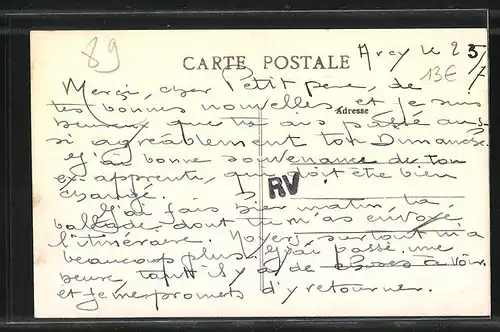 89
CARTE POSTALE
Arcy le 25/7
13€
Merci, cher Petit père, de
tes bonnes nouvelles, et je suis
Adresse
heureux que tu ais passé aus-
si agréablement ton Dimanche.
J'ai bonne souvenance de ton
ex-apprenti, qui doit être bien
changé.
RV
J'ai fais hier matin, ta
ballade, dont tu m'as envoyé
l'itinéraire. Noyers, surtout m'a
beaucoup plus. J'y ai passé une
heure, tant il y a de choses à voir.
et je me promets d'y retourner.